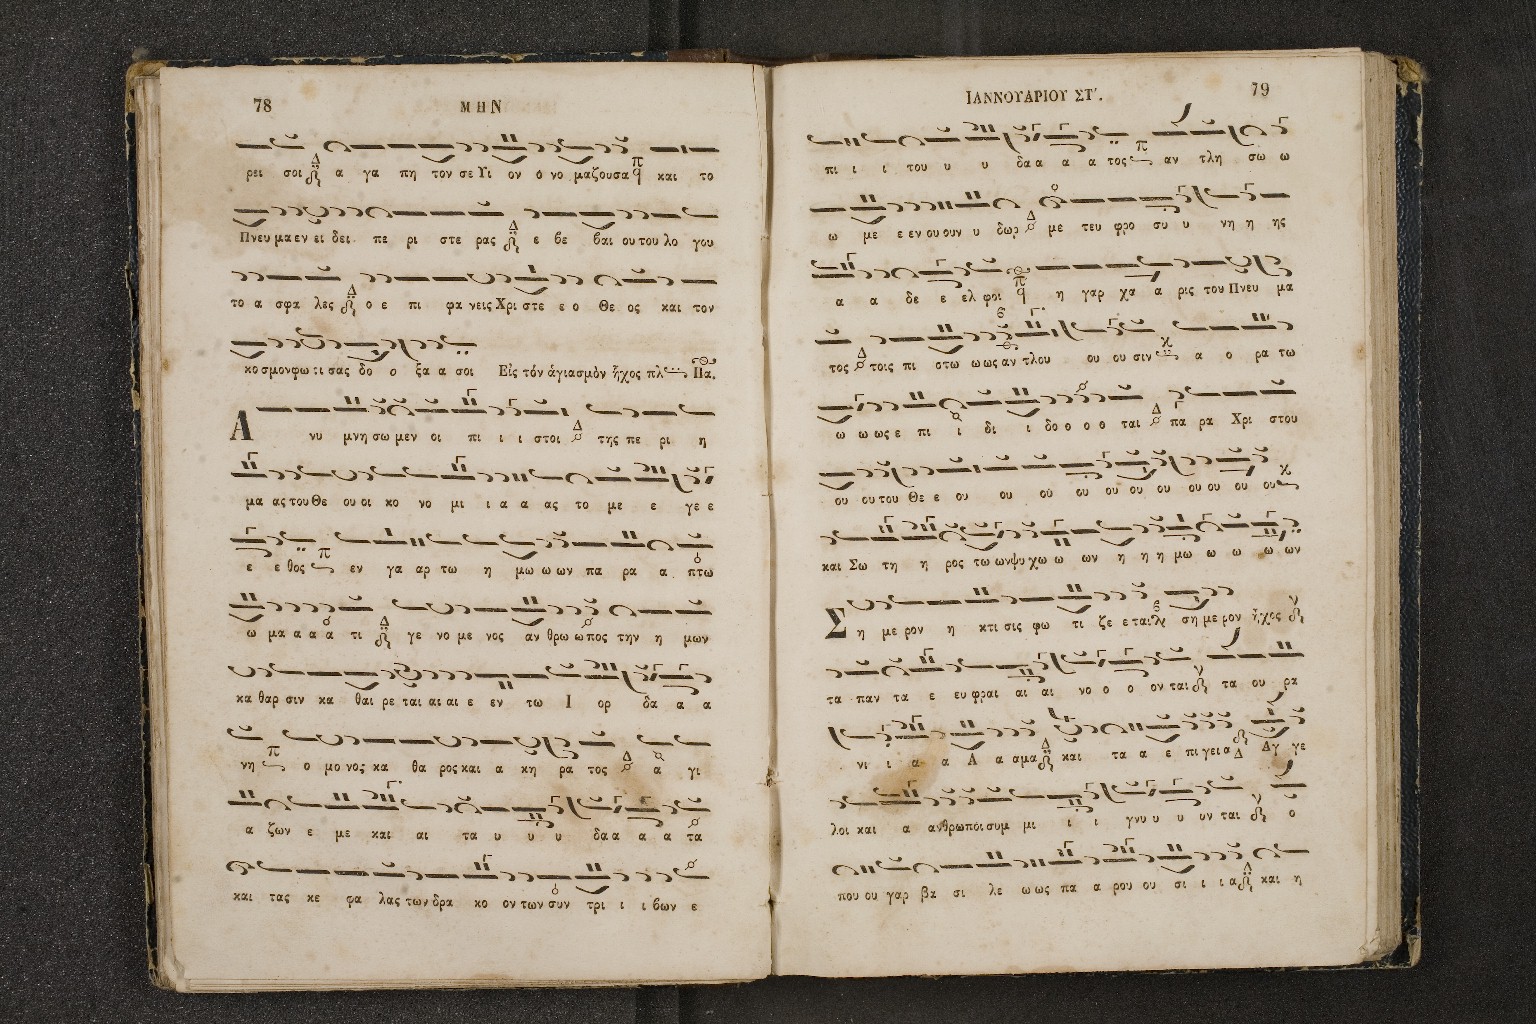 78 ΜΗΝ
ρει σοι α γα πη τον σε Υι ον ο νο μαζουσα και το
Πνευ μα εν ει δει πε ρι στε ρας ε βε βαι ου του λο γου
το α σφα λες ο ε πι φα νεις Χρι στε ε ο Θε ος και τον
κο σμον φω τι σας δο ο ξα α σοι Εἰς τὸν ἁγιασμὸν ἦχος πλ Πα.
Α νυ μνη σω μεν οι πι ι ι στοι της πε ρι η
μα ας του Θε ου οι κο νο μι ι α α ας το με ε γε ε
ε ε θος εν γα αρ τω η μω ω ων πα ρα α πτω
ω μα α α α τι γε νο με νος αν θρω ω πος την η μων
κα θαρ σιν κα θαι ρε ται αι αι ε εν τω Ι ορ δα α α
νη ο μο νος κα θα ρος και α κη ρα τος α γι
α ζων ε με και αι τα υ υ υ δα α α α τα
και τας κε φα λας των δρα κο ον των συν τρι ι ι βων ε
ΙΑΝΝΟΥΑΡΙΟΥ ΣΤ΄. 79
πι ι ι του υ υ δα α α α τος αν τλη σω ω
ω με ε εν ου ουν υ δωρ με τευ φρο συ υ νη η ης
α α δε ε ελ φοι η γαρ χα α ρις του Πνευ μα
τος τοις πι στω ω ως αν τλου ου ου σιν α ο ρα τω
ω ω ως ε πι ι δι ι δο ο ο ο ται πα ρα Χρι στου
ου ου του Θε ε ου ου ου ου ου ου ου ου ου ου ου
και Σω τη η ρος τω ων ψυ χω ω ων η η η μω ω ω ω ων
Σ η με ρον η κτι σις φω τι ζε ε ται ση με ρον ἦχος
τα παν τα ε ευ φραι αι αι νο ο ο ον ται τα ου ρα
νι ι α α Α α αμα και τα α ε πι γει α Αγ γε
λοι και α ανθρωποι συμ μι ι ι γνυ υ υ ον ται ο
που ου γαρ βα σι λε ω ως πα α ρου ου σι ι ι α και η